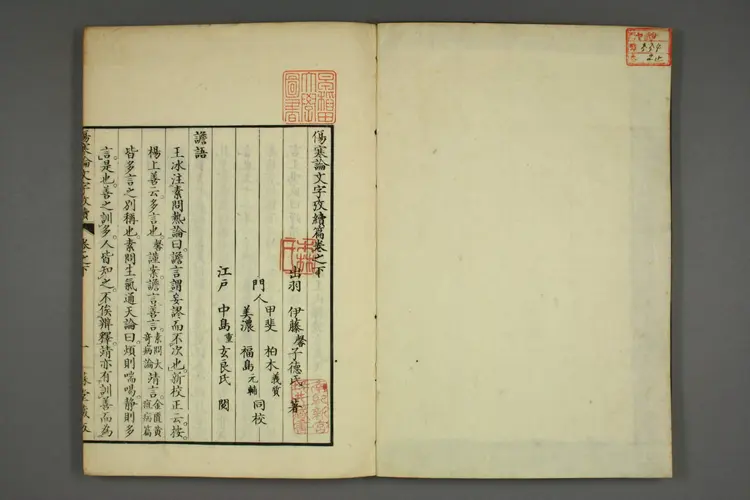 傷寒論文字攷續篇卷之下
出羽 伊藤馨子德氏 著
門人
甲斐 柏木義質
美濃 福島元輔
同校
江戸 中島玄良氏 閲
譫語
王冰注素問熱論曰譫言謂妄謬而不次也新校正云按
楊上善云多言也馨謹案譫言善言素問大奇病論靖言金匱黄疸病篇
皆多言之別稱也素問生氣通天論曰煩則喘喝靜則多
言是也善之訓多人皆知之不俟辨釋靖亦有訓善而為
傷寒論文字攷續 卷之下 一